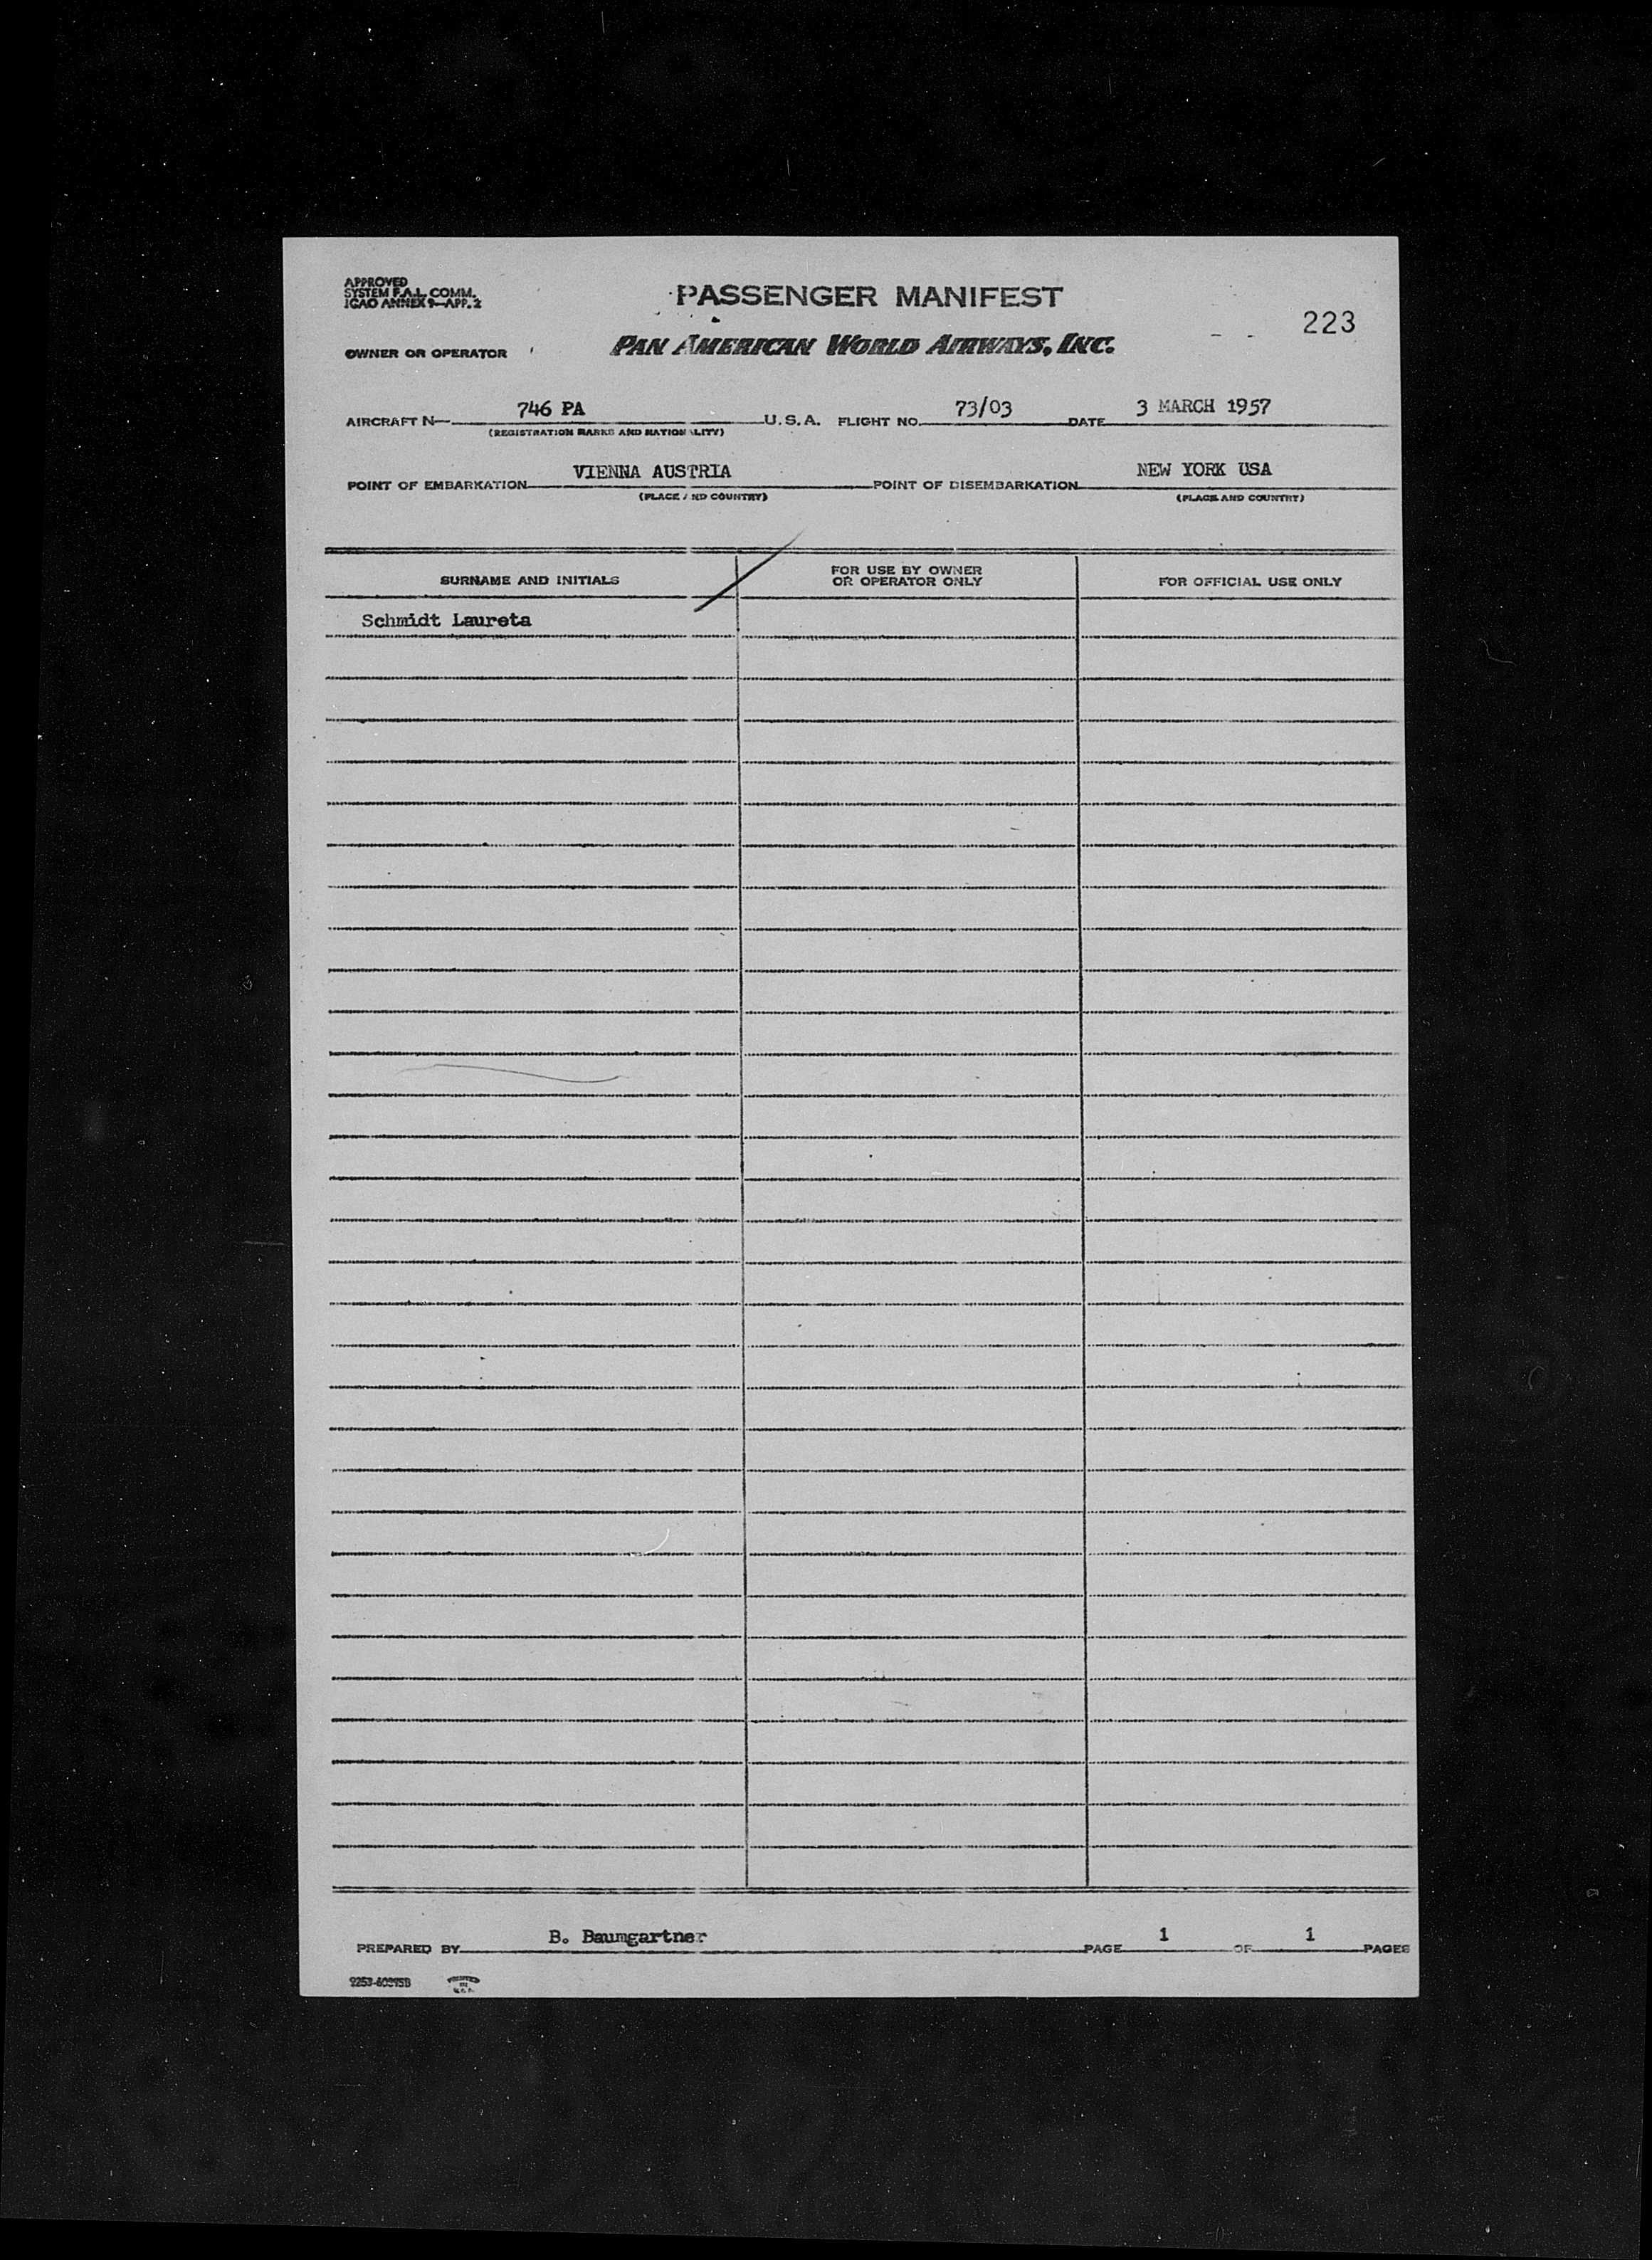 APPROVED
SYSTEM F.A.L. COMM.
ICAO ANNEX 9—APP. 2
PASSENGER MANIFEST
223
OWNER OR OPERATOR
PAN AMERICAN WORLD AIRWAYS, INC.
AIRCRAFT N— 746 PA U.S.A. FLIGHT NO. 73/03 DATE 3 MARCH 1957
(REGISTRATION MARKS AND NATIONALITY)
POINT OF EMBARKATION VIENNA AUSTRIA POINT OF DISEMBARKATION NEW YORK USA
(PLACE AND COUNTRY) (PLACE AND COUNTRY)
SURNAME AND INITIALS
FOR USE BY OWNER
OR OPERATOR ONLY
FOR OFFICIAL USE ONLY
Schmidt Laureta
PREPARED BY B. Baumgartner PAGE 1 OF 1 PAGES